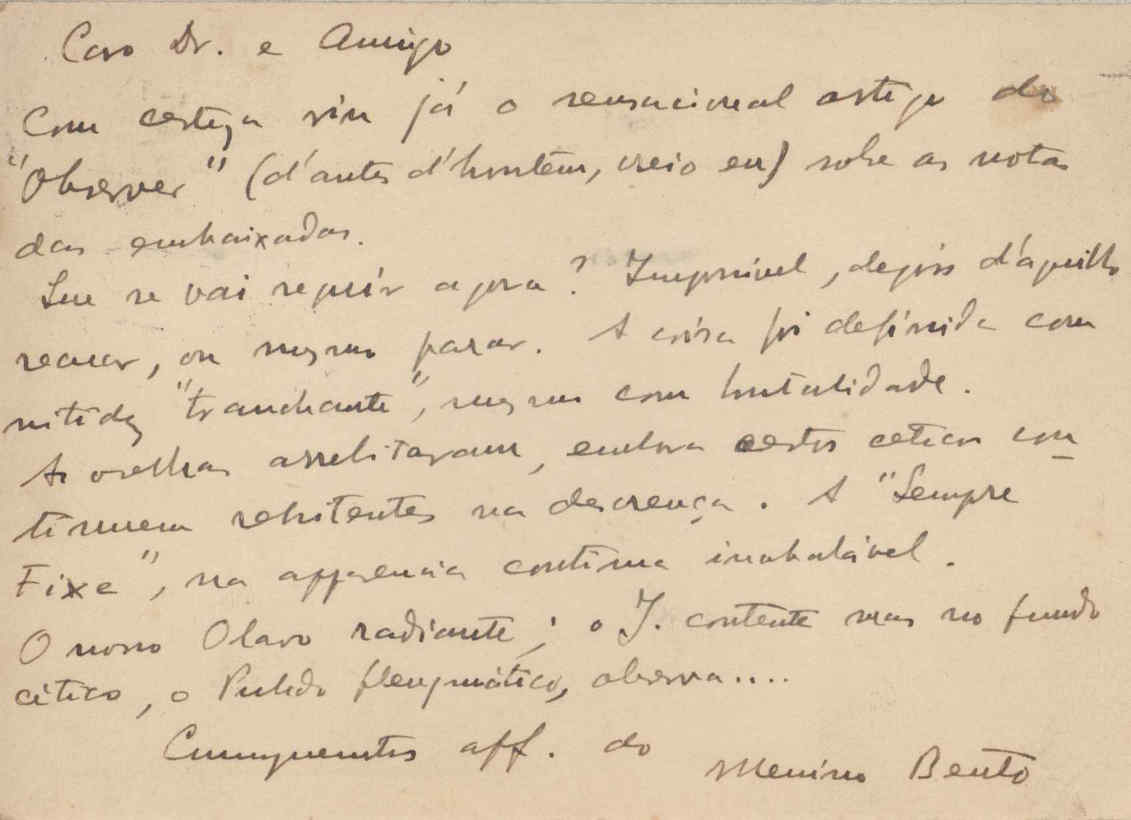 Caro Dr. e Amigo
Com certeza viu já o sensacional artigo do
"Observer" (d'antes d'hontem, creio eu) sobre as notas
das embaixadas.
Que se vai seguir agora? Impossivel, depois d'aquillo
recuar, ou mesmo parar. A coisa foi definida com
nitidez "tranchante", mesmo com brutalidade.
As orelhas arrebitaram, embora certos ceticos con-
tinuem rebitentes na descrença. A "Sempre
Fixe", na apparencia continua inabalável.
O nosso Olavo radiante; o J. contente mas no fundo
cético, o Pulido fleugmático, observa....
Cumprimentos aff. do
Menino Bento